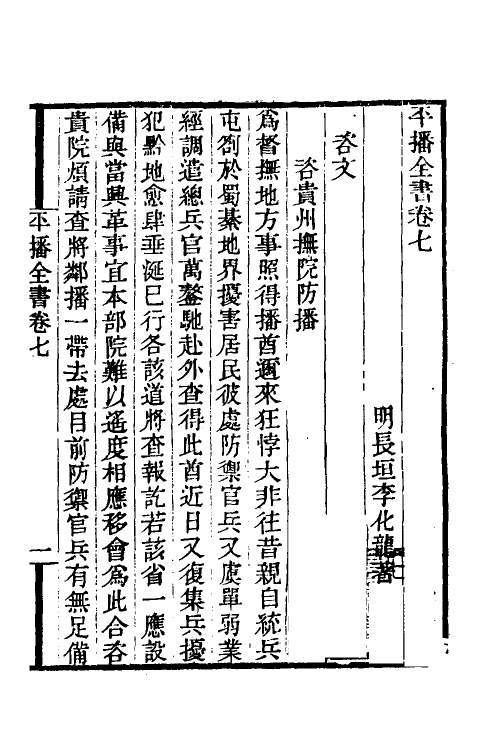 平播全書卷七
明長垣李化龍著
咨文
咨貴州撫院防播
爲督撫地方事照得播酋邇來狂悖大非往昔親自統兵
屯劄於蜀綦地界擾害居民彼處防禦官兵又虞單弱業
經調遣總兵官萬鏊馳赴外查得此酋近日又復集兵擾
犯黔地愈肆垂涎已行各該道將查報訖若該省一應設
備與當興革事宜本部院難以遙度相應移會爲此合咨
貴院煩請查將鄰播一帶去處目前防禦官兵有無足備
平播全書卷七
一